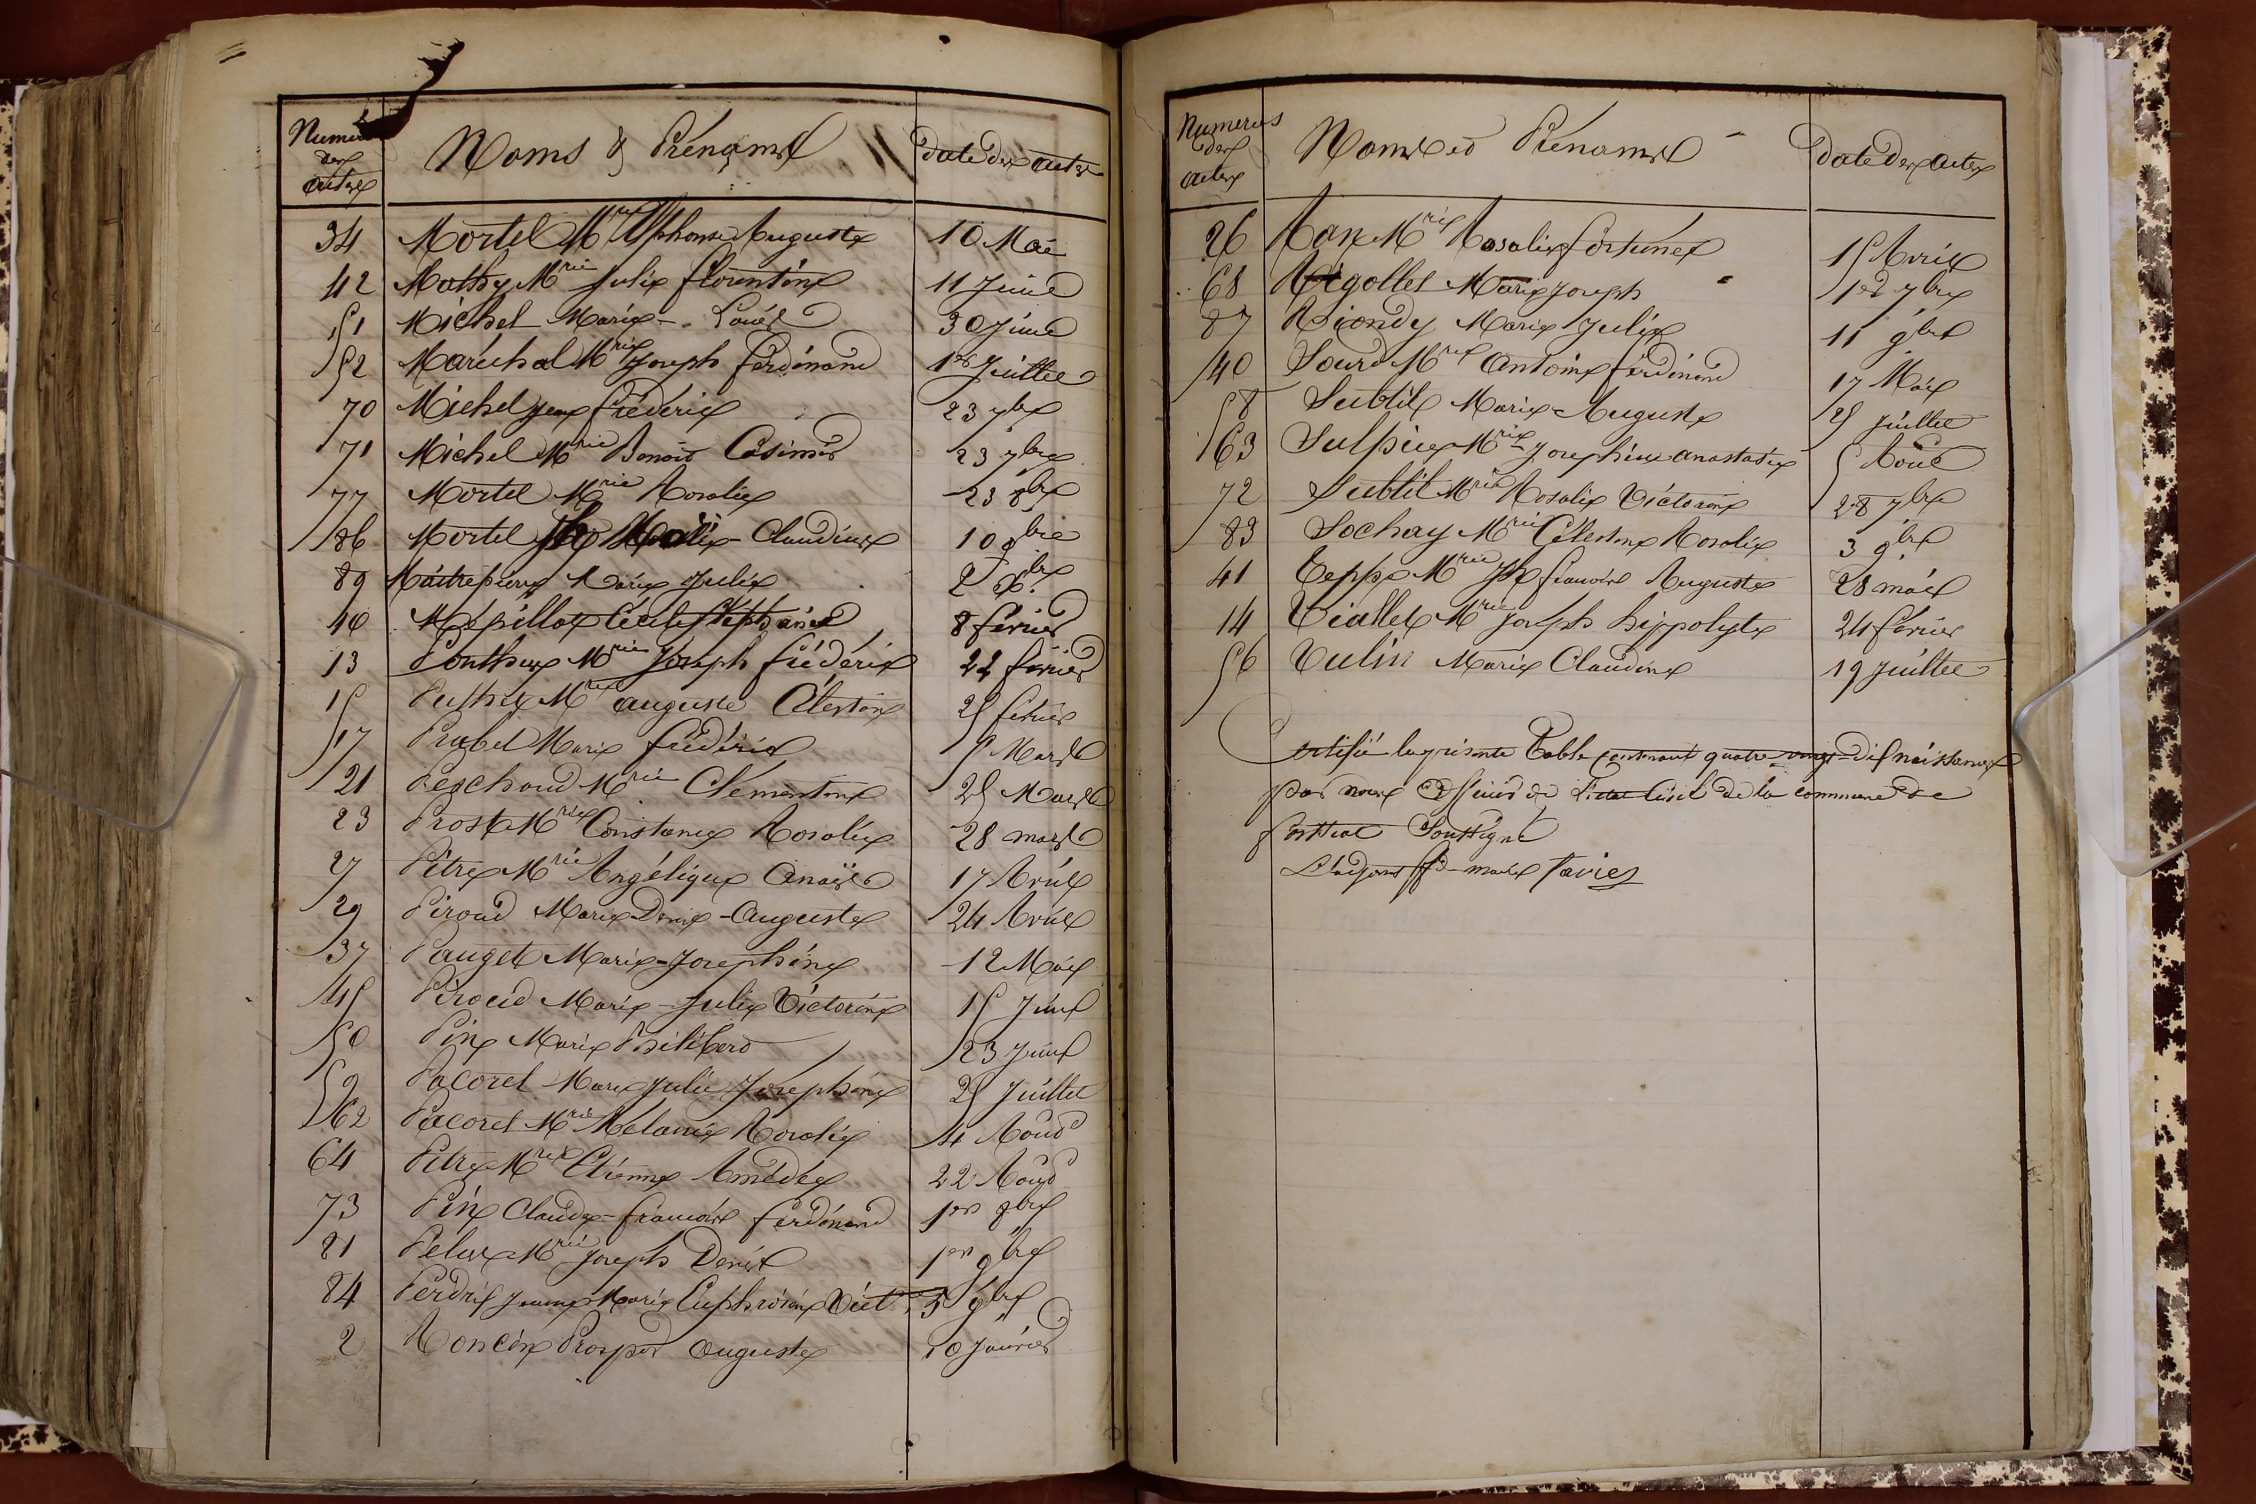 Numéros des actes
Noms & Prénoms
date des actes
34 Mortel Mrie Alphonse Auguste 10 Mai
42 Mathy Mrie Julie florentine 11 Juin
51 Michel Marie-Louise 30 Juin
52 Maréchal Mrie Joseph ferdinand 1er Juillet
70 Michel Jean frédéric 23 7bre
71 Michel Mrie Benoit Casimir 23 7bre
77 Mortel Mrie Rosalie 23 8bre
86 Mortel Marie-Claudine 10 9bre
89 Maitrepierre Marie Julie 2 Xbre
10 Cécile Stéphanie 8 février
13 Ponthus Mrie Joseph frédéric 22 février
15 Puthet Mrie auguste Célestin 25 février
17 Prabel Marie frédéric 5 Mars
21 Peschoud Mrie Clémentine 25 Mars
23 Prost Mrie Constance Rosalie 28 mars
27 Pitre Mrie Angélique Anaïs 17 Avril
29 Piroud Marie Denis-Auguste 24 Avril
37 Pauget Marie-Josephine 12 Mai
45 Piroud Marie-Julie Victorine 15 Juin
50 Pin Marie Philibert 23 Juin
59 Pacoret Marie Julie Josephine 25 Juillet
62 Pacoret Mrie Mélanie Rosalie 4 Aout
64 Pitre Mrie Etienne Amédée 22 Aout
73 Pin Claude-francois ferdinand 1er 8bre
81 Pelux Mrie Joseph Denis 1er 9bre
84 Perdrix Jeanne Marie Euphrosine Vict. 5 9bre
2 Roncin Prosper Auguste 10 Janvier
Numéros des actes
Noms et Prénoms
date des actes
26 Mrie Rosalie fortunée 15 Avril
68 Rigollet Marie Joseph 1er 7bre
87 Riondy Marie Julie 11 9bre
40 Sourd Mrie Antoine ferdinand 17 Mai
58 Subtil Marie-Auguste 25 juillet
63 Sulpice Mrie Josephine anastasie 5 Aout
72 Subtil Mrie Rosalie Victorine 28 7bre
83 Sochay Mrie Célestine Rosalie 3 9bre
41 Teppe Mrie Jh francois Auguste 28 mai
14 Viallet Mrie Joseph hippolyte 24 février
56 Vulin Marie Claudine 19 Juillet
Certifié la présente Table contenant quatre-vingt-dix naissances
par nous Officier de l'état Civil de la commune de
Soussigné